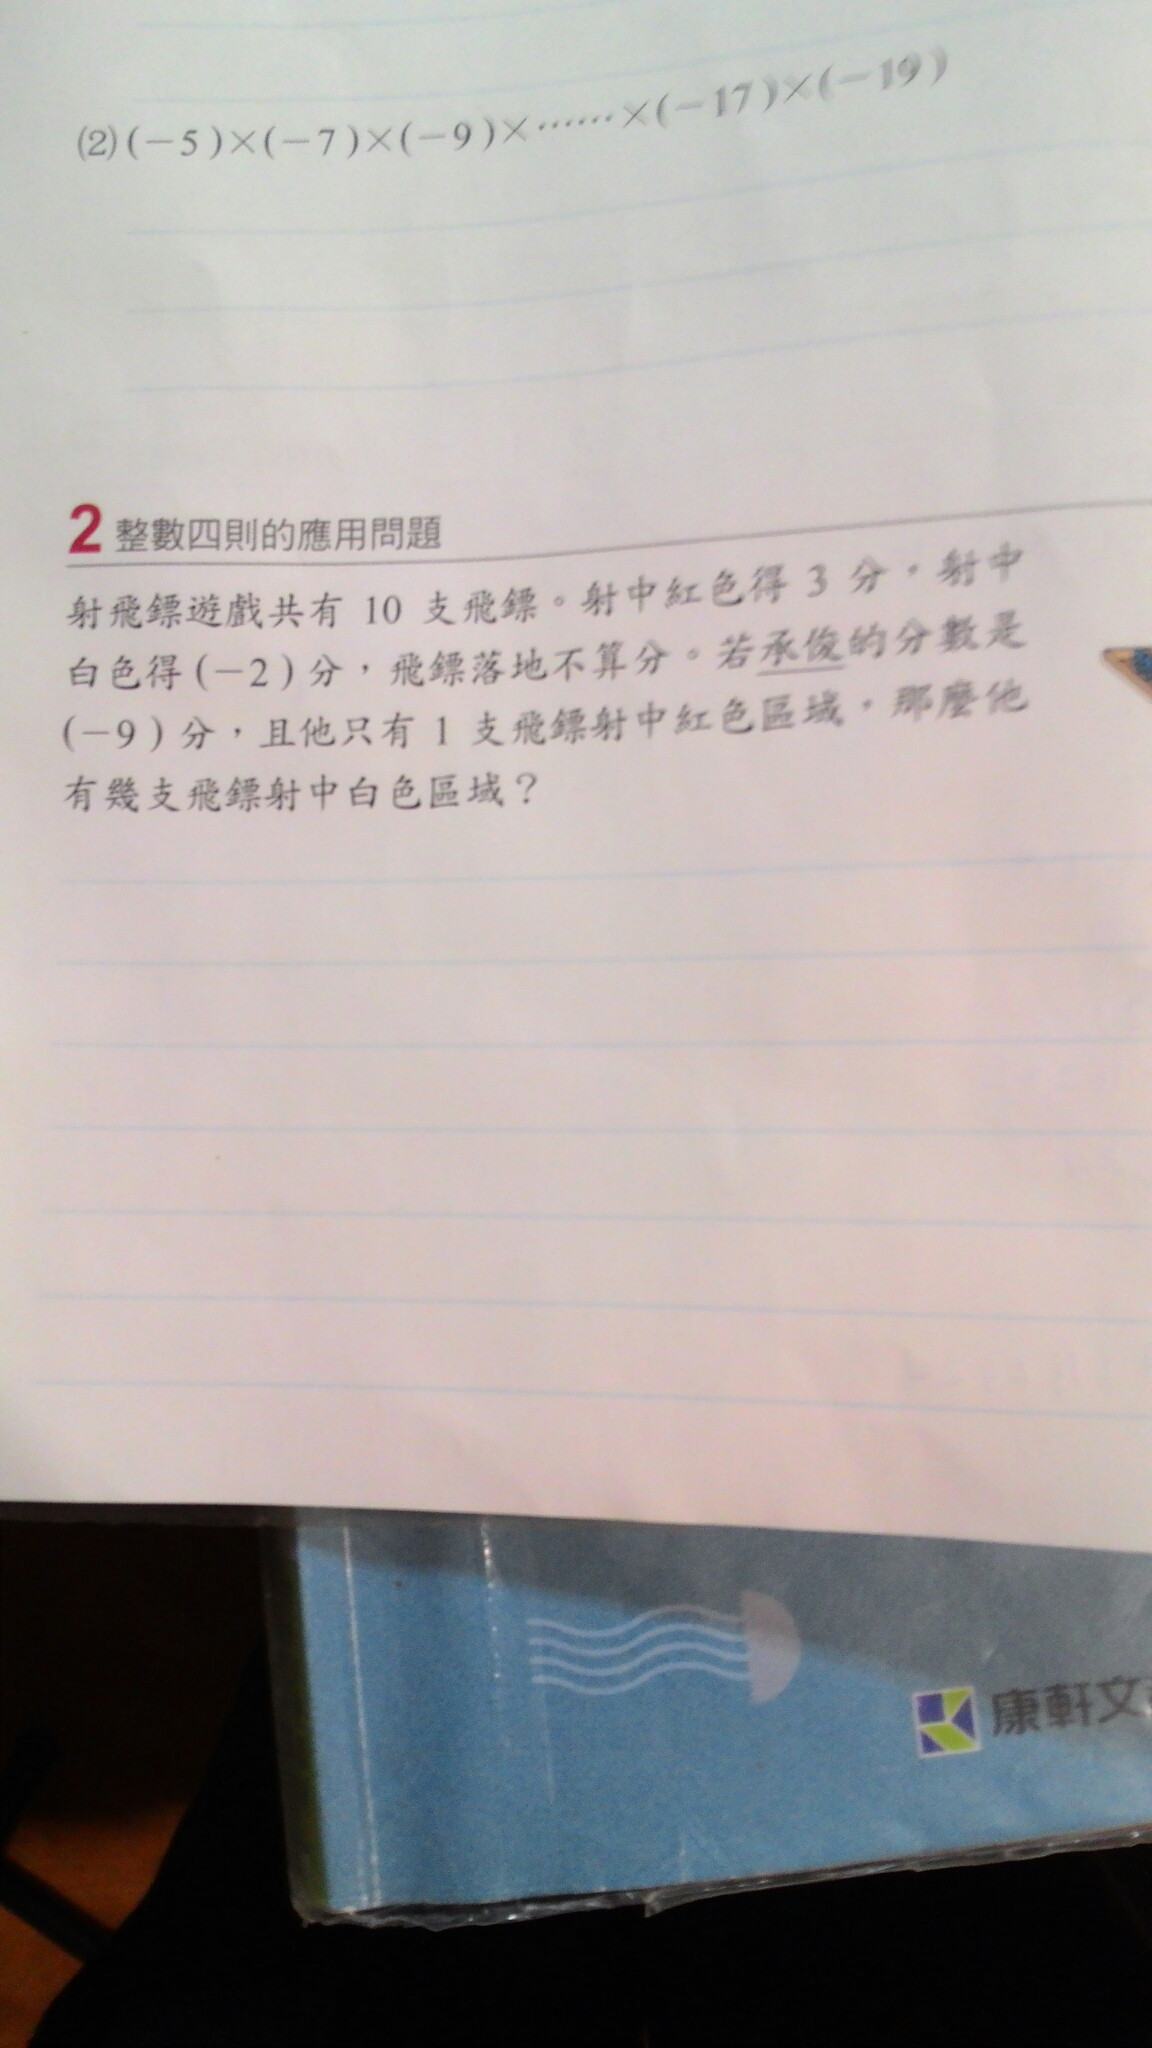 (2)(-5)×(-7)×(-9)×……×(-17)×(-19)
2 整數四則的應用問題
射飛鏢遊戲共有 10 支飛鏢。射中紅色得 3 分,射中
白色得(-2)分,飛鏢落地不算分。若承俊的分數是
(-9)分,且他只有 1 支飛鏢射中紅色區域,那麼他
有幾支飛鏢射中白色區域?
康軒文